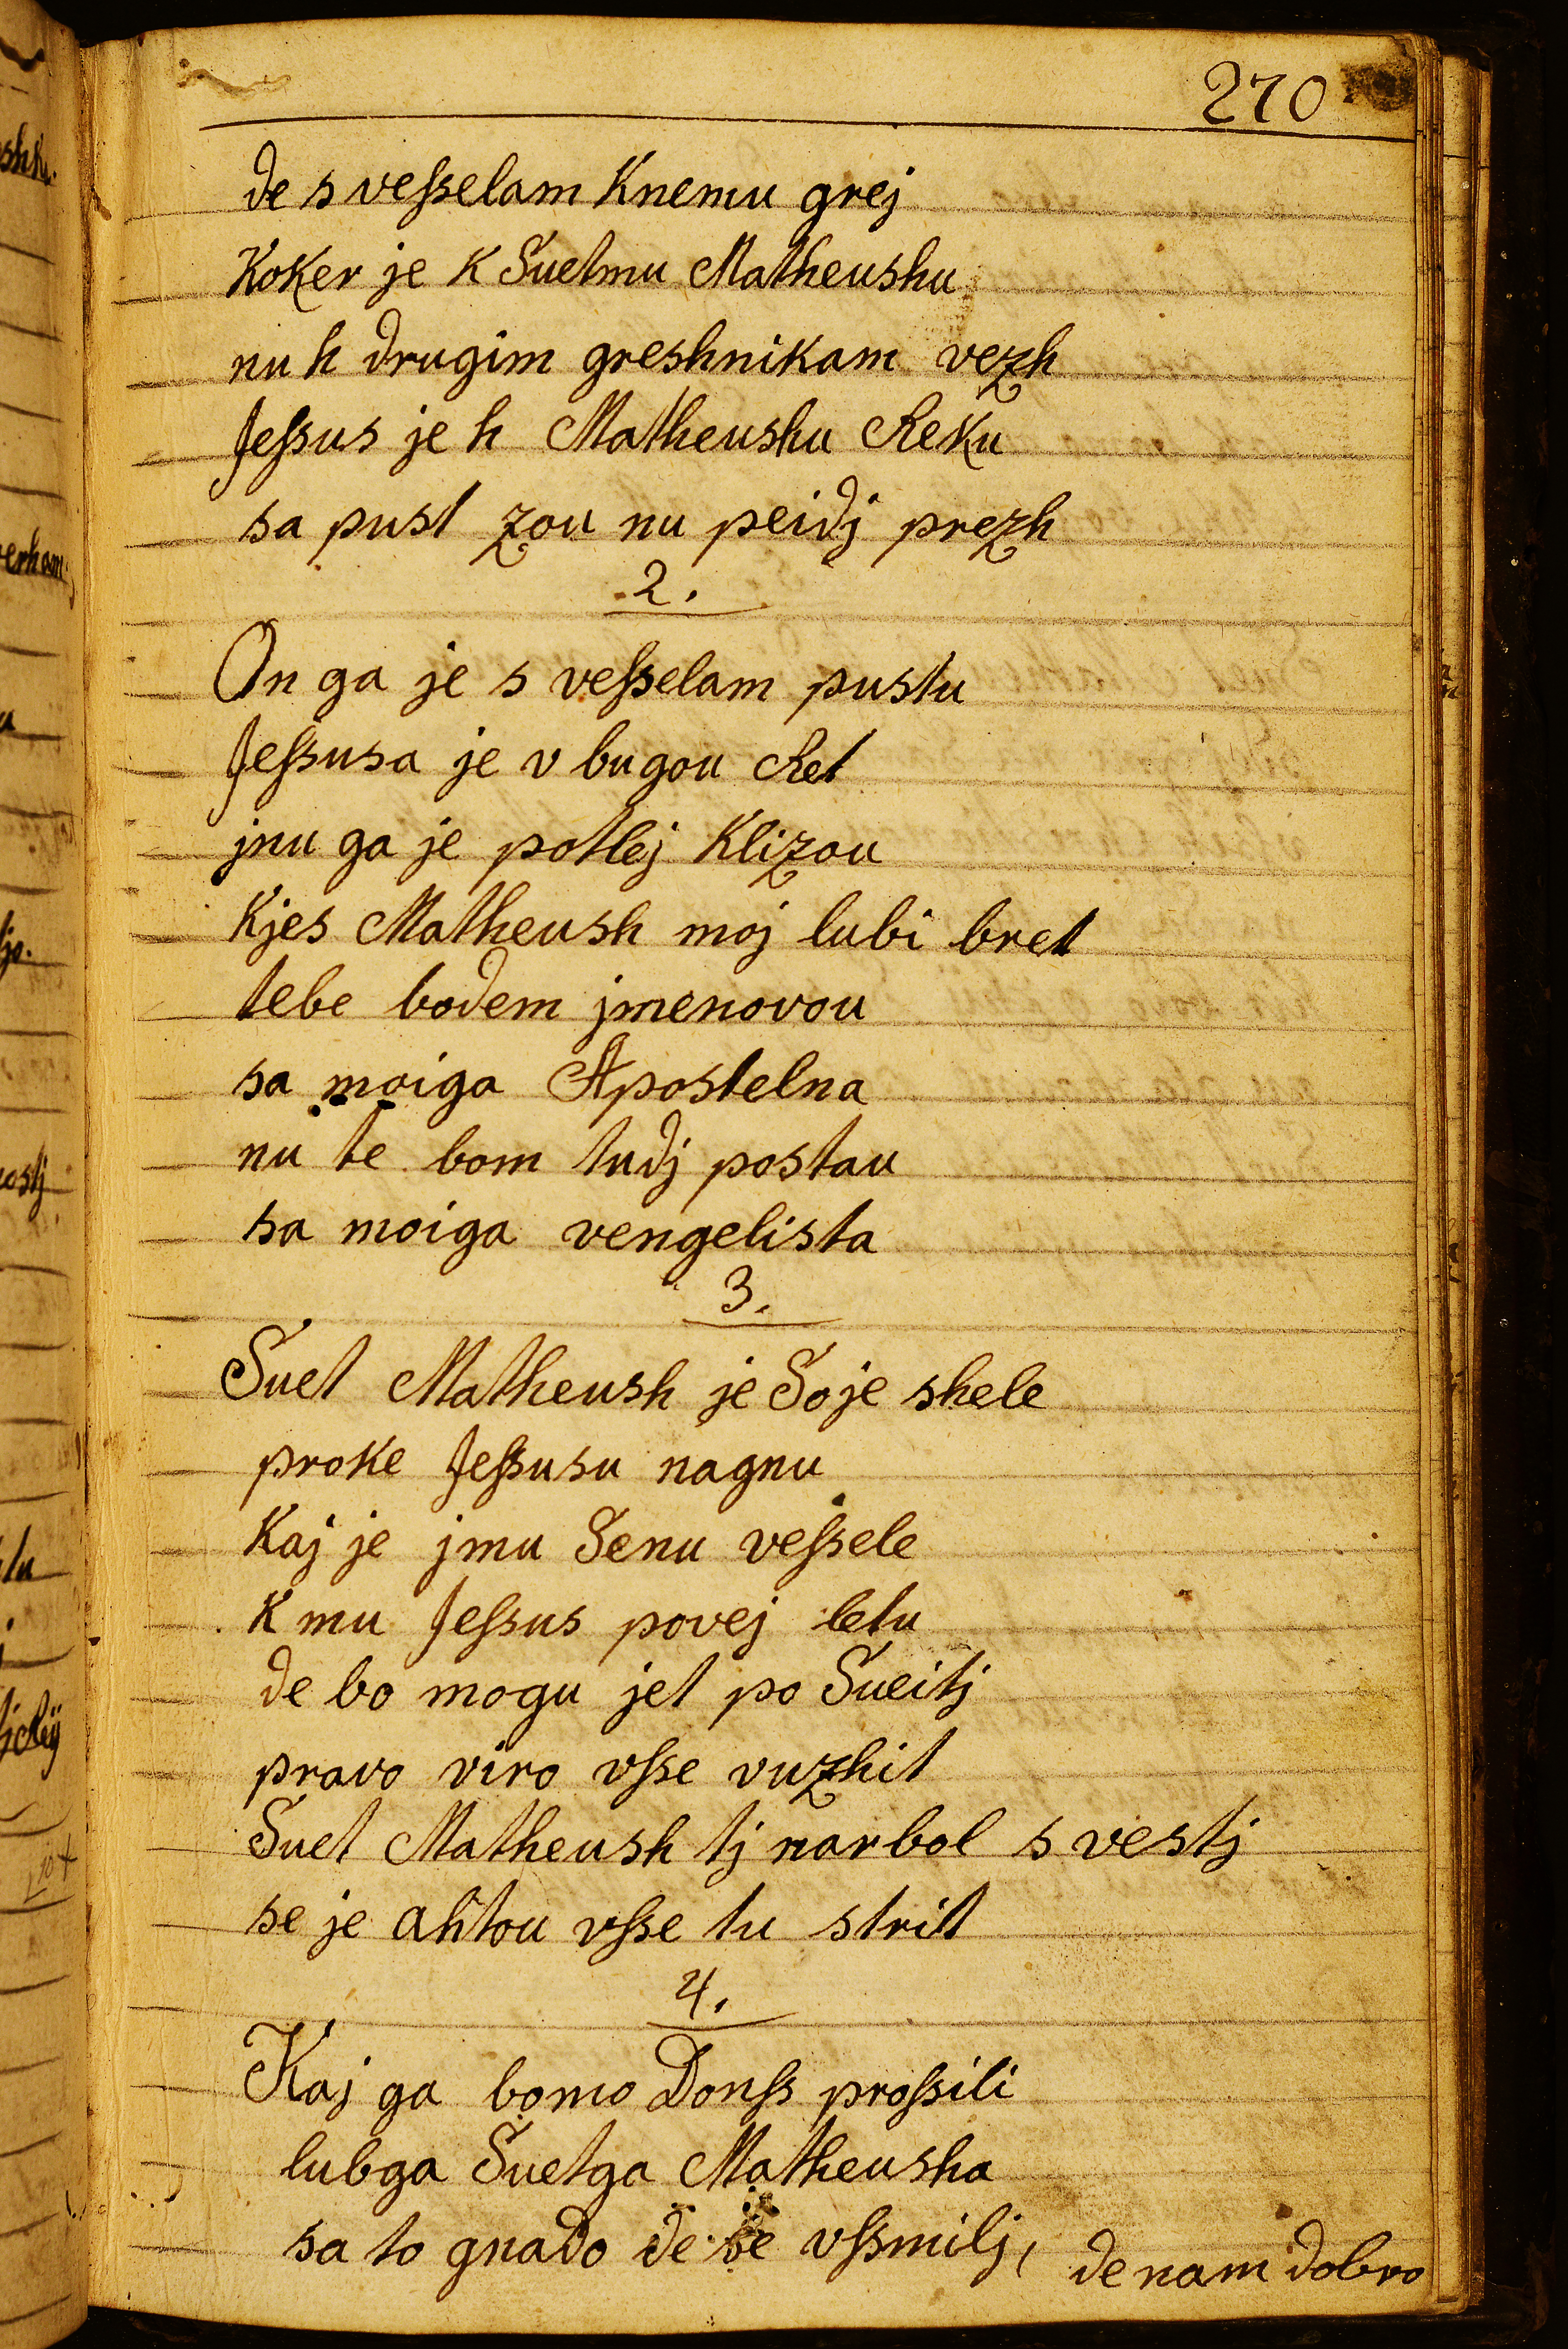 270
de s veſselam Knemu grej
Koker je K Suetmu Matheushu
nu h drugim greshnikam vezh
Jeſsus je h Matheushu Reku
sa pust zou nu peidj prezh
2.
On ga je s veſselam pustu
Jeſsusa je v bugou Ret
jnu ga je potlej Klizou
Kjes Matheush moj lubi bret
tebe bodem jmenovou
sa moiga Apostelna
nu te bom tudj postau
sa moiga vengelista
3.
Suet Matheush je Soje shele
proke Jeſsusu nagnu
Kaj je jmu Senu veſsele
K mu Jeſsus povej letu
de bo mogu jet po Sueitj
pravo viro vſse vuzhit
Suet Matheush tj narbol s vestj
se je ahtou vſse tu strit
4.
Kaj ga bomo Donſs proſsili
lubga Suetga Matheusha
sa to gnado de se vſsmilj, de nam dobro